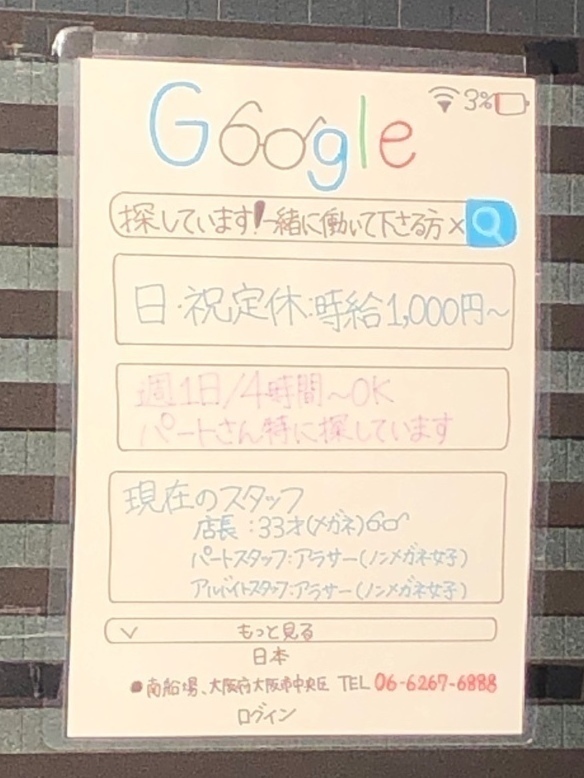 Google
3%
探しています!一緒に働いて下さる方 ×
日・祝定休:時給1,000円~
週1日/4時間~OK
パートさん特に探しています
現在のスタッフ
店長:33才(メガネ)
パートスタッフ:アラサー(ノンメガネ女子)
アルバイトスタッフ:アラサー(ノンメガネ女子)
もっと見る
日本
●南船場、大阪府大阪市中央区 TEL 06-6267-6888
ログイン